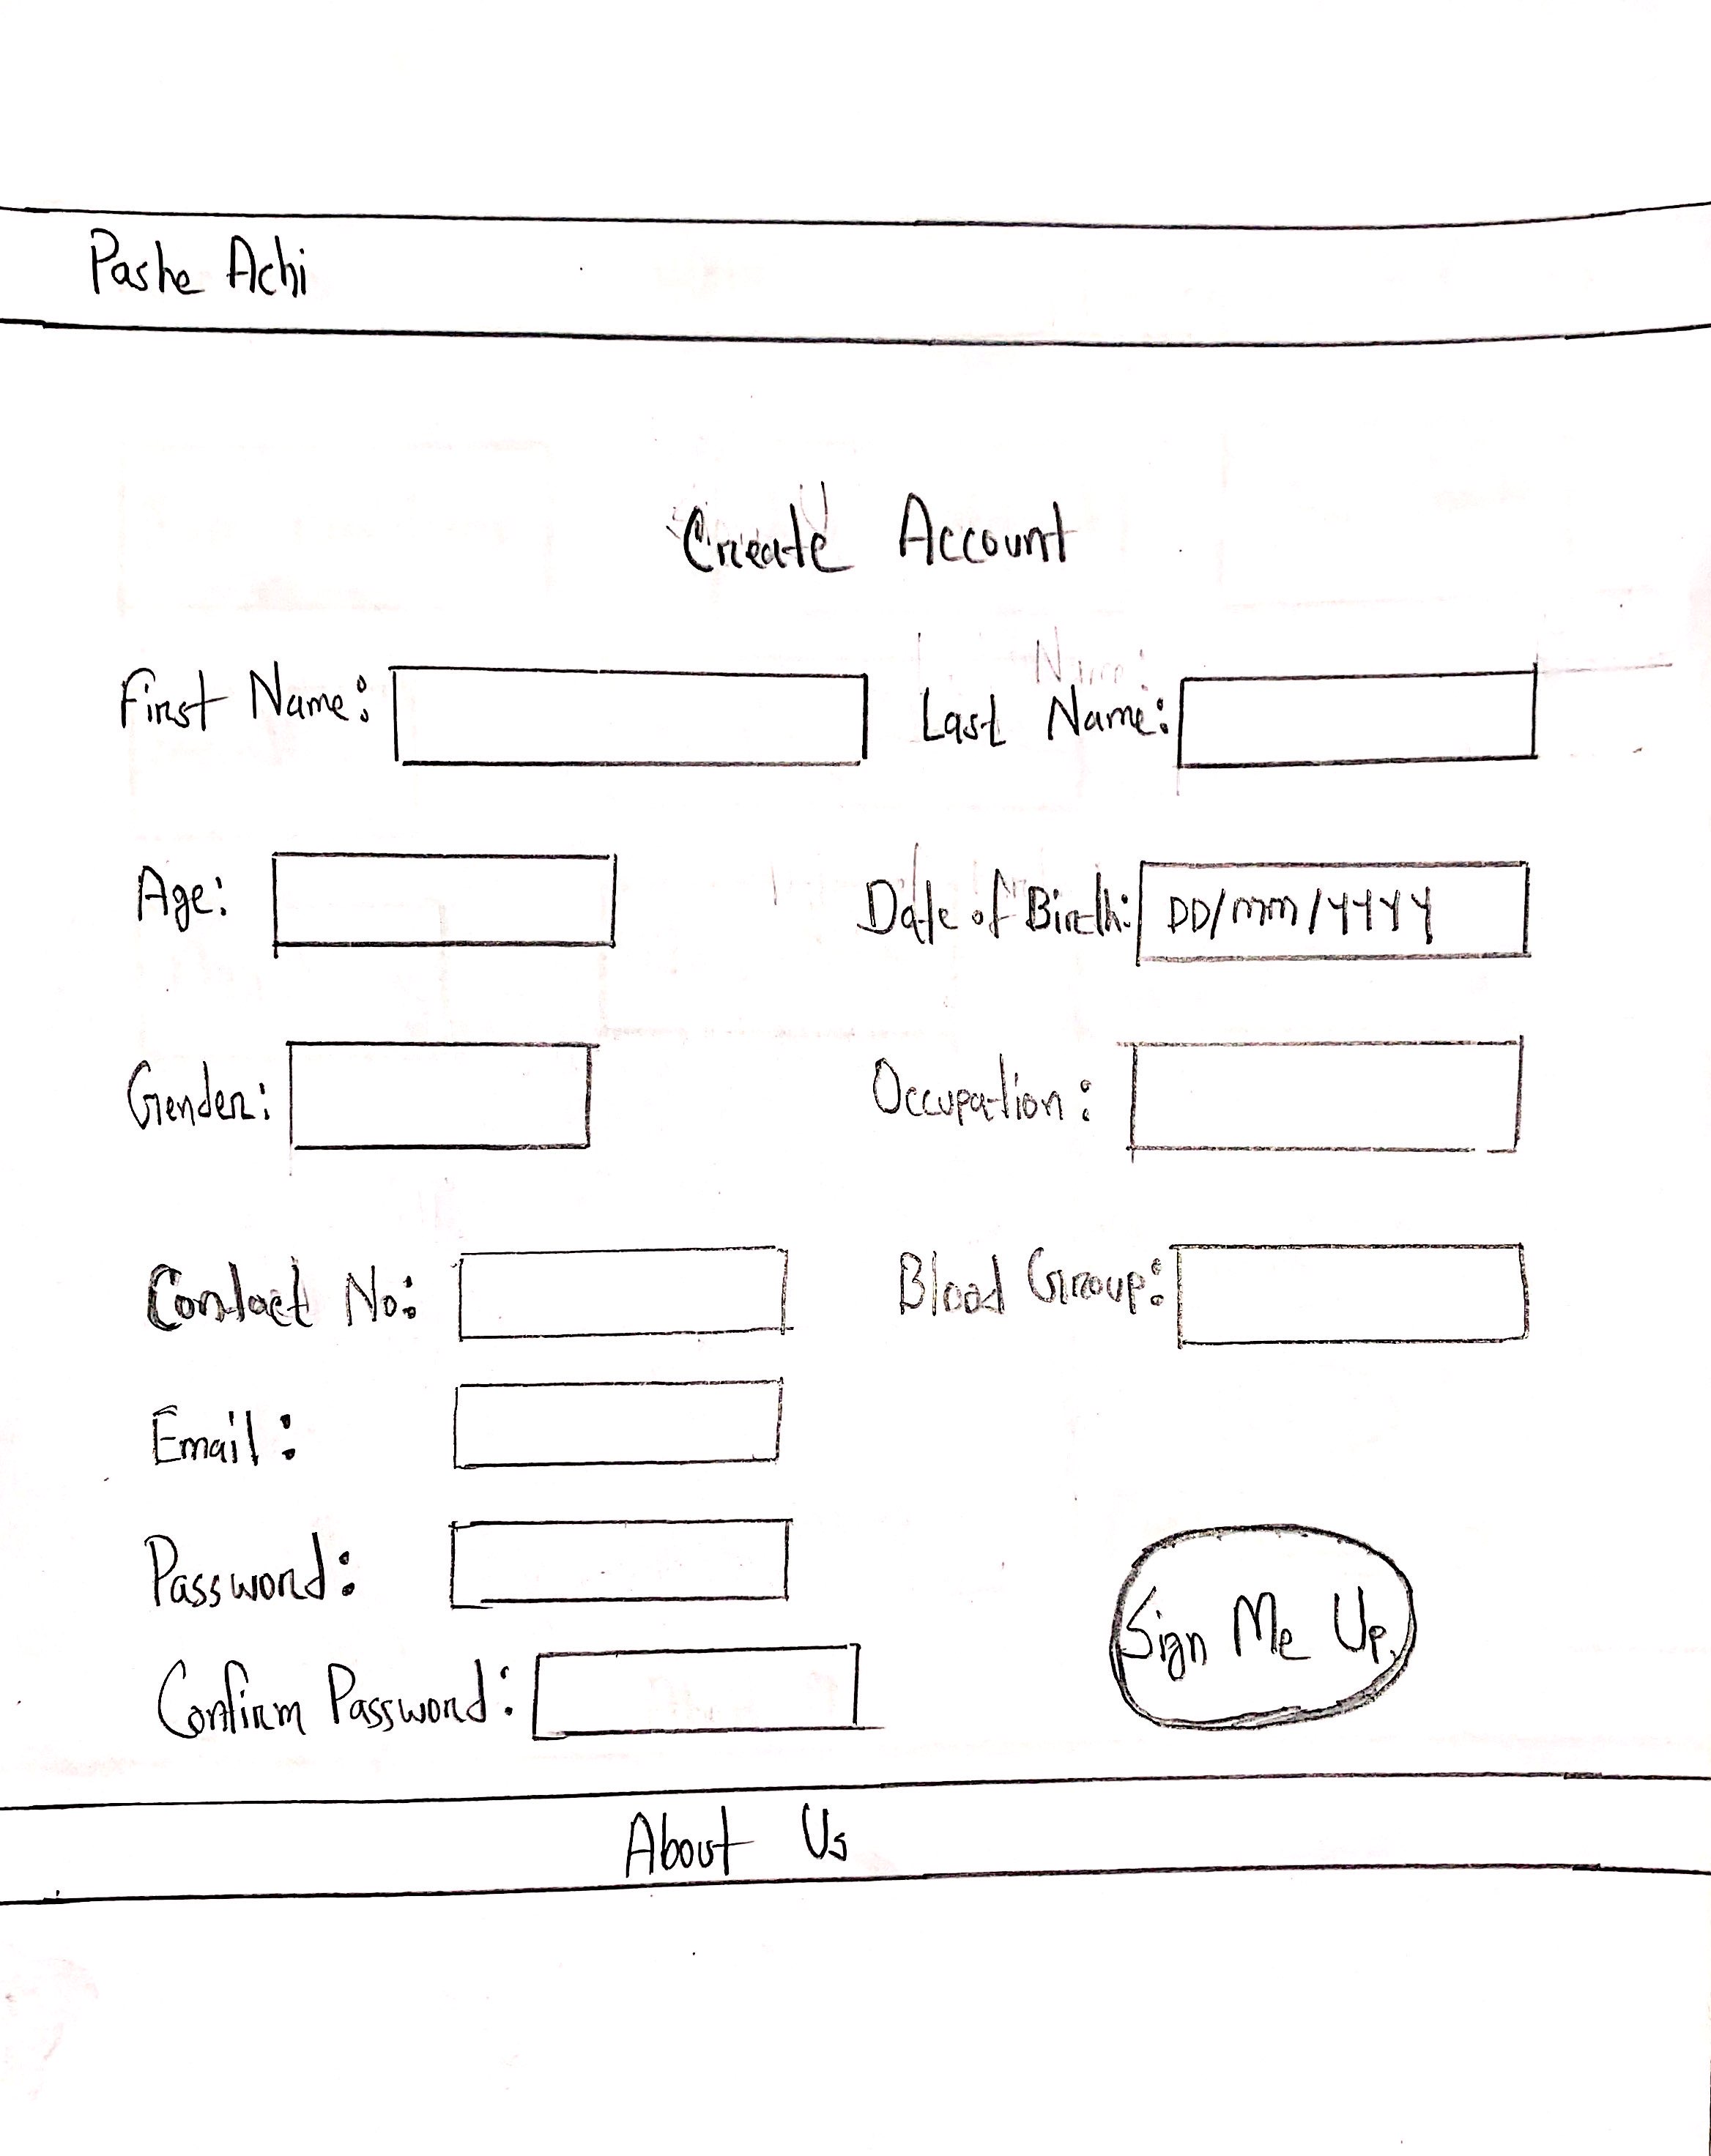 Pashe Achi
Create Account
First Name:
Last Name:
Age:
Date of Birth: DD/mm/YYYY
Gender:
Occupation:
Contact No:
Blood Group:
Email:
Password:
Sign Me Up
Confirm Password:
About Us